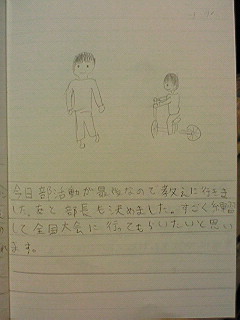 今日部活動が最後なので教えに行きま
した。あと部長も決めました。すごく練習
して全国大会に行ってもらいたいと思い
ます。